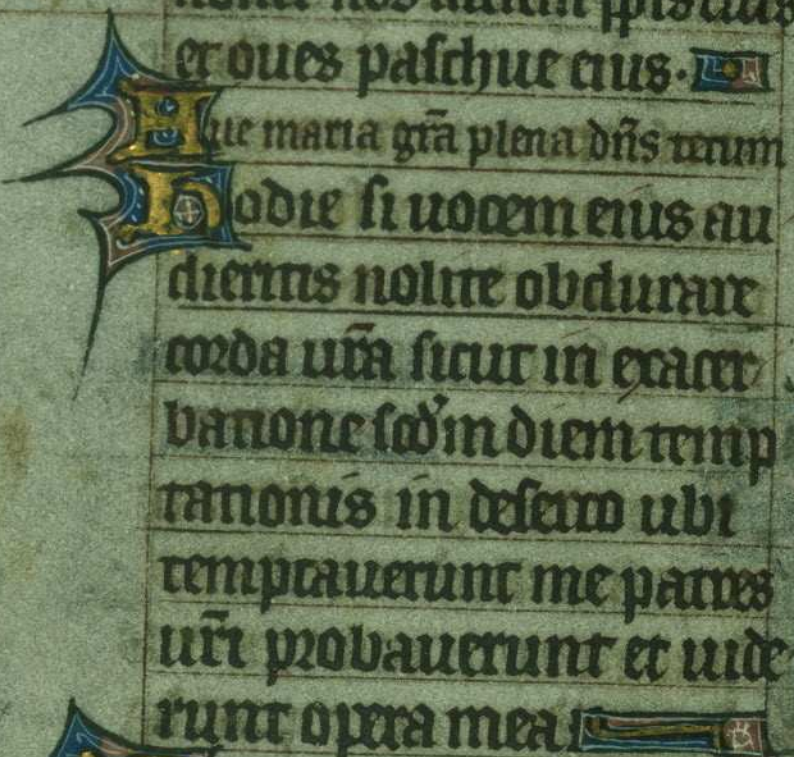 et oues paschue eius.
Aue maria gr̄a plena dn̄s tecum
Hodie si uocem eius au
dieritis nolite obdurare
corda ur̄a sicut in exacer
batione scd̄m diem temp
tationis in deserto ubi
temptauerunt me patres
ur̄i probauerunt et uide
runt opera mea